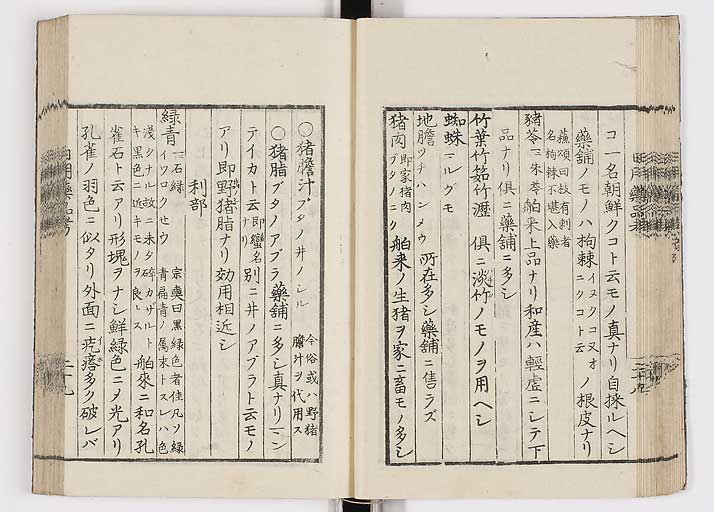 コ一名朝鮮クコト云モノ真ナリ自採ルヘシ
藥舗ノモノハ拘棘イヌクコ又オニクコト云ノ根皮ナリ
蘓頌曰枚有刺者
名拘棘不堪入藥
豬苓一ニ朱苓舶来上品ナリ和産ハ輕虚ニシテ下
品ナリ俱ニ藥舗ニ多シ
竹葉竹筎竹瀝 俱ニ淡竹ノモノヲ用ヘシ
蜘蛛ニルグモ
地膽ツチハンメウ 所在多シ藥舗ニ售ラズ
猪肉即家猪肉ブタノニク舶来ノ生猪ヲ家ニ畜モノ多シ
○猪膽汁ブタノ井ノシル 今俗或ハ野猪膽汁ヲ代用ス
○猪脂ブタノアブラ藥舗ニ多シ真ナリマン
テイカト云即蠻名ナリ別ニ井ノアブラト云モノ
アリ即野猪脂ナリ効用相近シ
利部
緑青一石緑イワロクセウ 宗奭曰黒緑色者佳凡ソ緑青扁青ノ属末トスレハ色
淺クナル故ニ未タ碎カザルトキ黒色ニ近キモノヲ良トス 舶來ニ和名孔
雀石ト云アリ形塊ヲナシ鮮緑色ニメ光アリ
孔雀ノ羽色ニ似タリ外面ニ疙瘩多ク破レバ